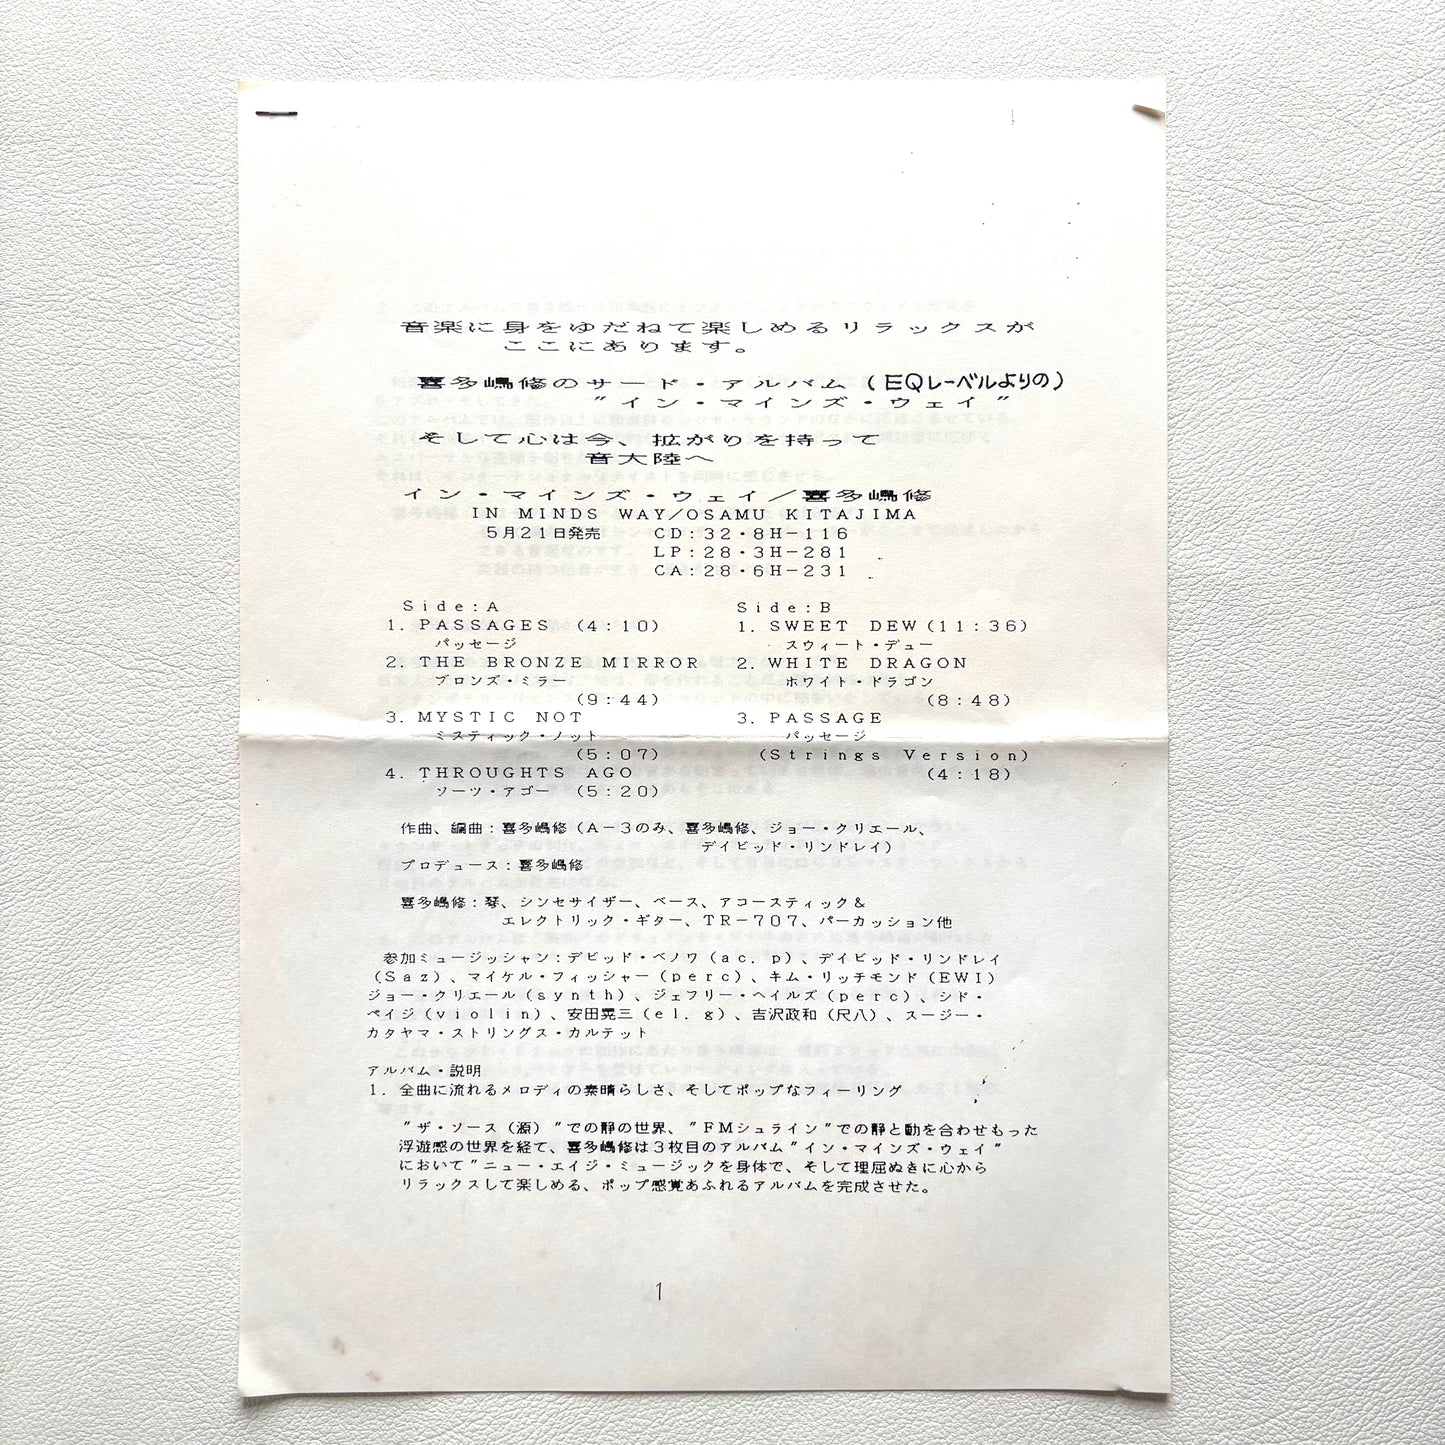 音楽に身をゆだねて楽しめるリラックスが
ここにあります。
喜多嶋修のサード・アルバム（EQレーベルよりの）
”イン・マインズ・ウェイ”
そして心は今、拡がりを持って
音大陸へ
イン・マインズ・ウェイ／喜多嶋修
IN MINDS WAY／OSAMU KITAJIMA
5月21日発売 CD：32・8H－116
LP：28・3H－281
CA：28・6H－231
Side：A
1．PASSAGES （4：10）
パッセージ
2．THE BRONZE MIRROR
ブロンズ・ミラー
（9：44）
3．MYSTIC NOT
ミスティック・ノット
（5：07）
4．THROUGHTS AGO
ソーツ・アゴー （5：20）
Side：B
1．SWEET DEW（11：36）
スウィート・デュー
2．WHITE DRAGON
ホワイト・ドラゴン
（8：48）
3．PASSAGE
パッセージ
（Strings Version）
（4：18）
作曲、編曲：喜多嶋修（A－3のみ、喜多嶋修、ジョー・クリエール、
デイビッド・リンドレイ）
プロデュース：喜多嶋修
喜多嶋修：琴、シンセサイザー、ベース、アコースティック＆
エレクトリック・ギター、TR－707、パーカッション他
参加ミュージッシャン：デビッド・ベノワ（ac．p）、デイビッド・リンドレイ
（Saz）、マイケル・フィッシャー（perc）、キム・リッチモンド（EWI）
ジョー・クリエール（synth）、ジェフリー・ヘイルズ（perc）、シド・
ペイジ（violin）、安田晃三（el．g）、吉沢政和（尺八）、スージー・
カタヤマ・ストリングス・カルテット
アルバム・説明
1．全曲に流れるメロディの素晴らしさ、そしてポップなフィーリング
”ザ・ソース（源）”での静の世界、”FMシュライン”での静と動を合わせもった
浮遊感の世界を経て、喜多嶋修は3枚目のアルバム”イン・マインズ・ウェイ”
において”ニュー・エイジ・ミュージックを身体で、そして理屈ぬきに心から
リラックスして楽しめる、ポップ感覚あふれるアルバムを完成させた。
1